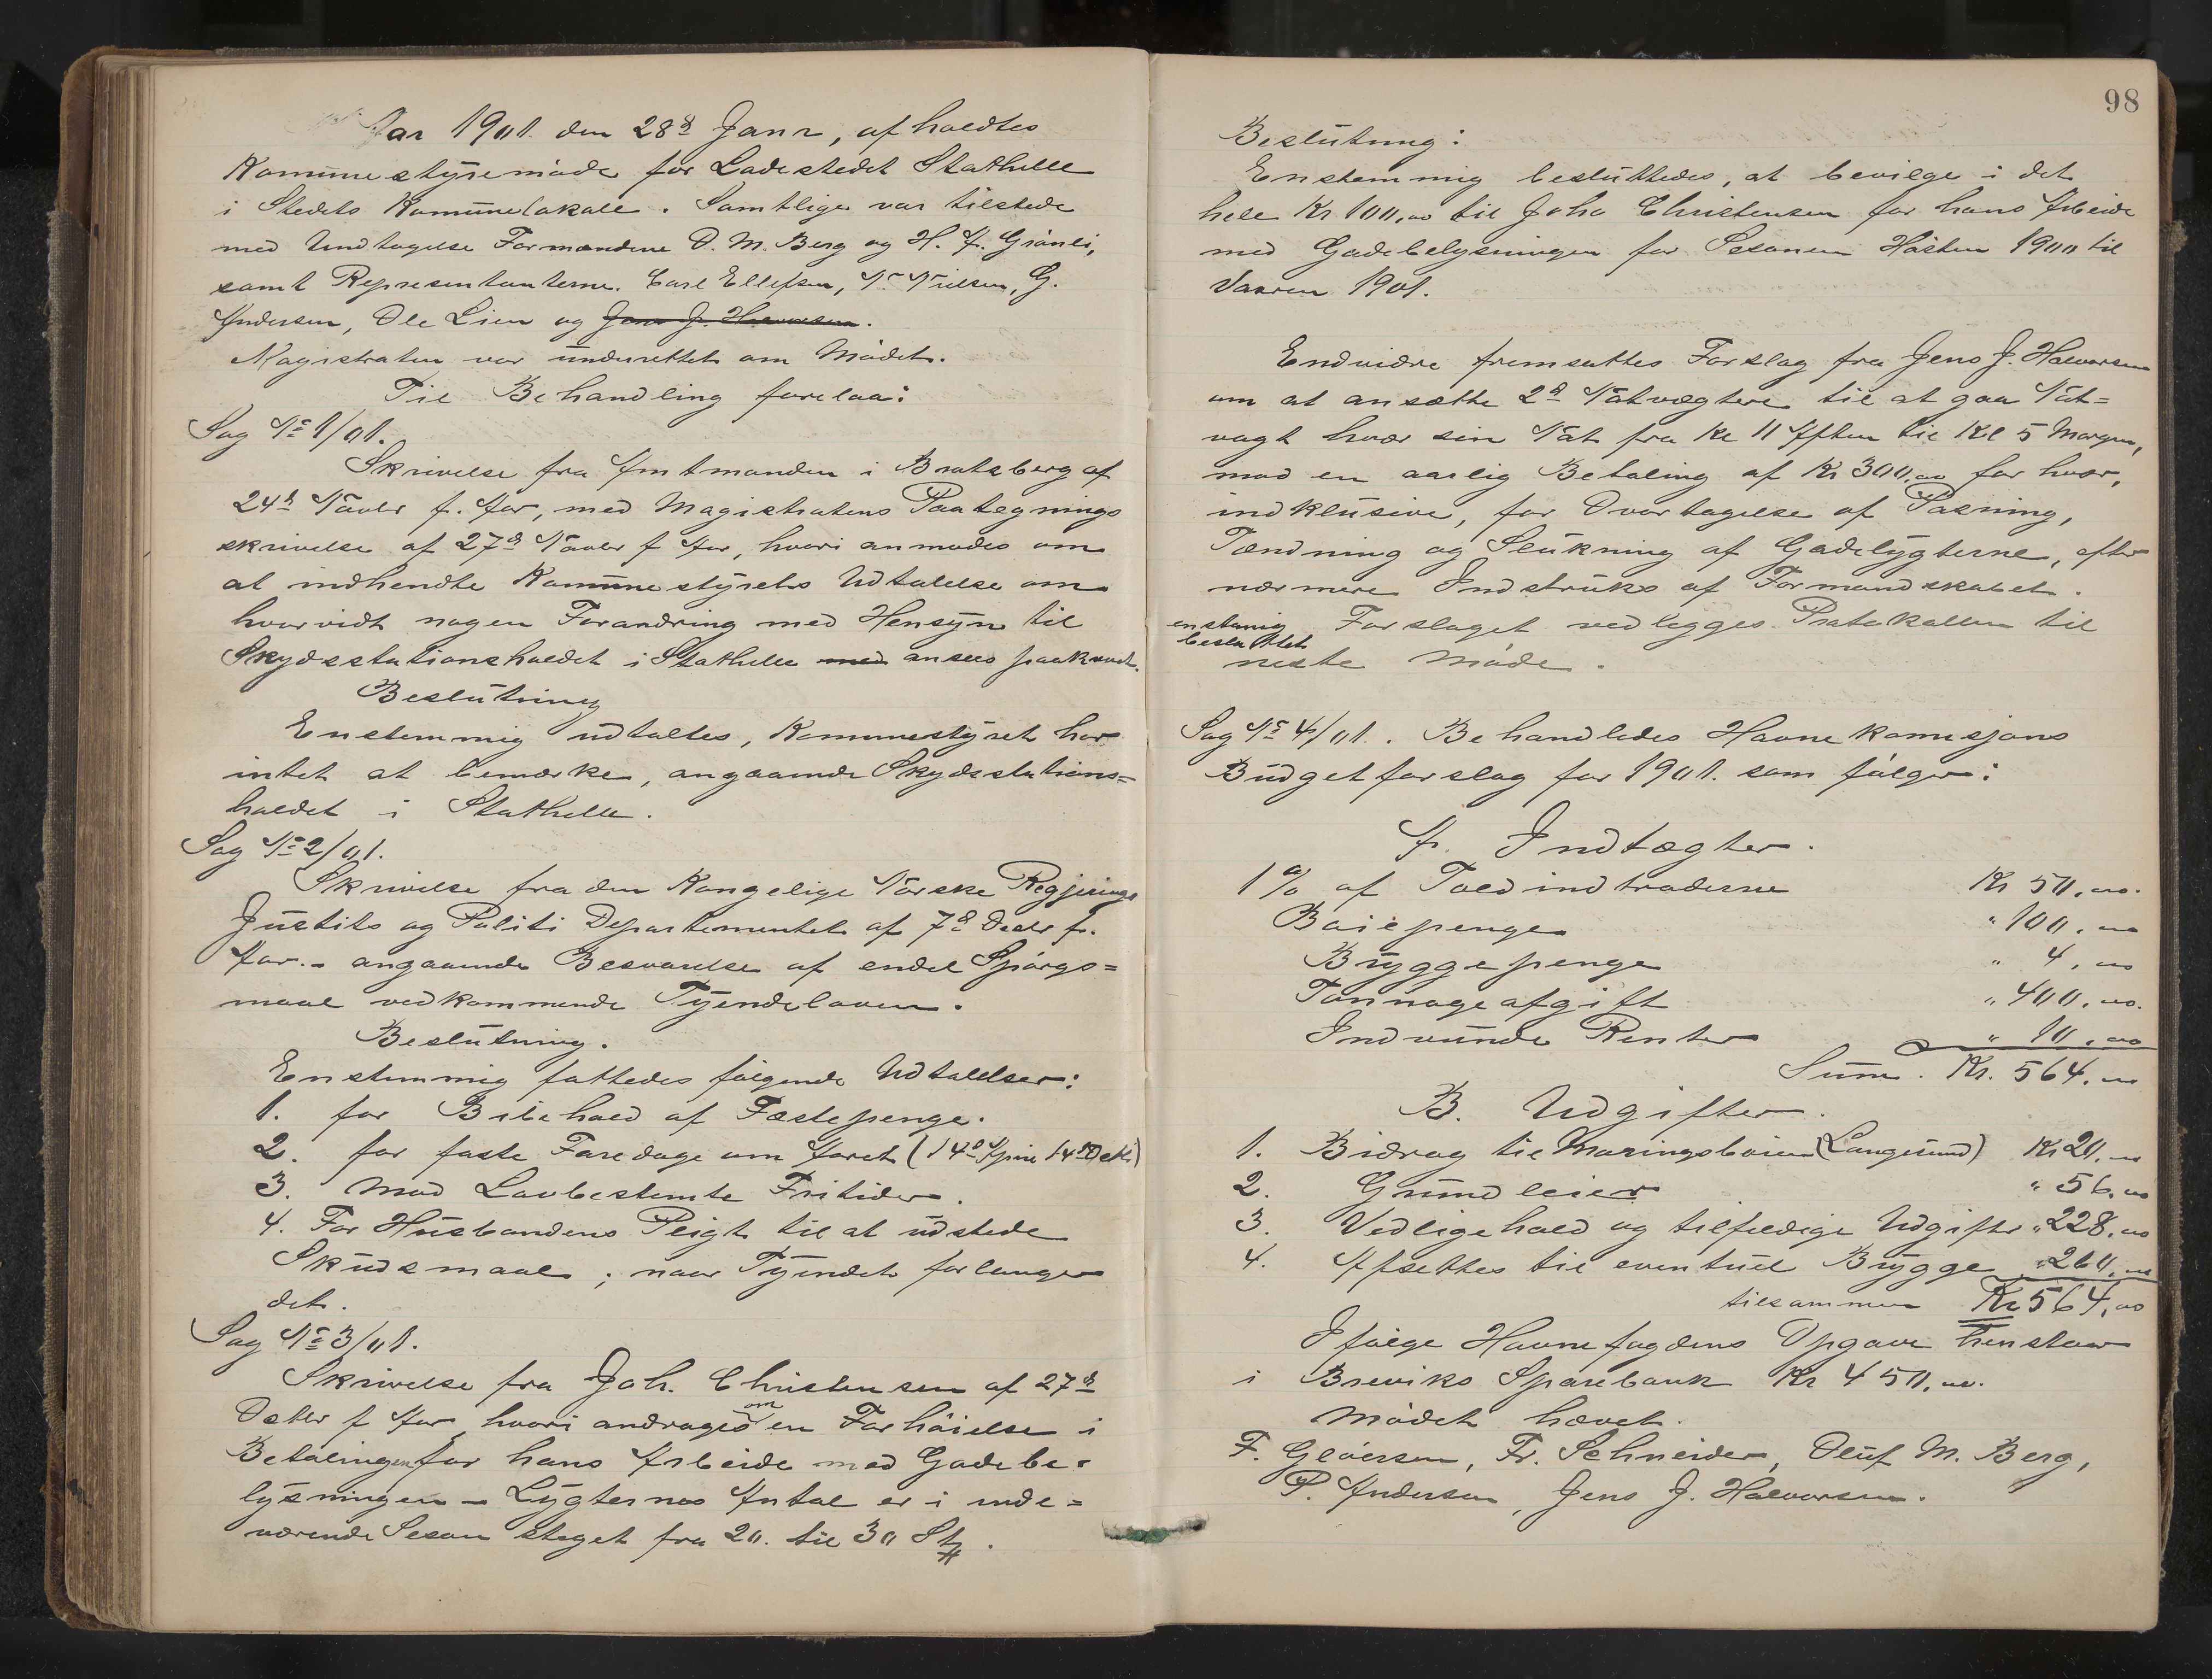 Aar 1901. den 28de Janr, afholdtes
Kommunestyremøde for Ladestedet Stathelle
i Stedets Kommunelokale. Samtlige var tilstede
med Undtagelse Formændene O. M. Berg og H. A. Grönli,
samt Representanterne. Carl Ellefsen, N. Nielsen, G.
Andersen, Ole Lien og Jens J. Halvorsen.
Magistraten var underrettet om Mödet.
Til Behandling forelaa:
Sag No 1/01.
Skrivelse fra Amtmanden i Bratsberg af
24de Novbr f. Aar, med Magistratens Paategnings
skrivelse af 27de Novbr f Aar, hvori anmodes om
at indhendte Kommunestyrets Udtalelse om
hvorvidt nogen Forandring med Hensyn til
Skydsstationsholdet i Stathelle med ansees paakrævet.
Beslutning
Enstemmig udtaltes, Kommunestyret har
intet at bemærke, angaaende Skydsstations=
holdet i Stathelle.
Sag No 2/01.
Skrivelse fra den Kongelige Norske Regjerings
Justits og Politi Departementet af 7de Decbr f.
Aar. - angaaende Besvarelse af endel Spörgs=
maal vedkommende Tyendeloven.
Beslutning.
Enstemmig fattedes fölgende Udtalelser:
1. for Bibehold af Fæstepenge.
2. for faste Faredage om Aaret (14de April 14de Octbr)
3. Mod Lovbestemte Fritider.
4. For Husbondens Pligt til at udstede
Skudsmaal, naar Tyendet forlanger
det.
Sag No 3/01.
Skrivelse fra Joh. Christensen af 27de
Octbr f Aar, hvori andrages om en Forhöielse i
Betalingen for hans Arbeide med Gadebe=
lysningen - Lygternes Antal er i inde=
værende Seson steget fra 20. til 30 St.
98
Beslutning:
Enstemmig besluttedes, at bevilge i det
hele Kr 100,00 til Joho Christensen for hans Arbeide
med Gadebelysningen for Sesonen Hösten 1900 til
Vaaren 1901.
Endvidre fremsattes Forslag fra Jens J. Halvorsen
om at ansætte 2de Natvægtere til at gaa Nat=
vagt hver sin Nat fra Kl 11 Aften til Kl 5 Morgen,
mod en aarlig Betaling af Kr 300,00 for hver,
indklusive, for Overtagelse af Pasning,
Tænding og Slukning af Gadelygterne, efter
nærmere Indstruks af Formandskabet.
enstemig besluttet Forslaget vedlegges Protokollen til
neste Möde.
Sag No 4/01. Behandledes Havnekomisjons
Budgetforslag for 1901. som fölger:
A. Indtægter.
1% af Toldindtraderne Kr 50,00.
Böiepenge " 100,00
Bryggepenge " 4,00
Tonnageafgift " 400,00.
Indvundne Renter " 10,00
Summ. Kr. 564,00
B. Udgifter.
1. Bidrag til Maaringsböien (Langesund) Kr 20,00
2. Grundleier " 56,00
3. Vedligehold og tilfeldige Udgifter " 228,00
4. Afsettes til eventuel Brygge " 260,00
tilsammen Kr 564,00
Ifölge Havnefogdens Opgave henstaar
i Breviks Sparebank Kr 450,00.
Mödet hævet.
F. Glöersen, Fr. Schneider, Oluf M. Berg,
P. Andersen, Jens J. Halvorsen.